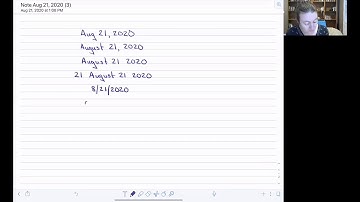 Note Aug 21, 2020 (3)
Aug 21, 2020 at 1:08 PM
Aug 21, 2020
August 21, 2020
August 21 2020
21 August 21 2020
8/21/2020